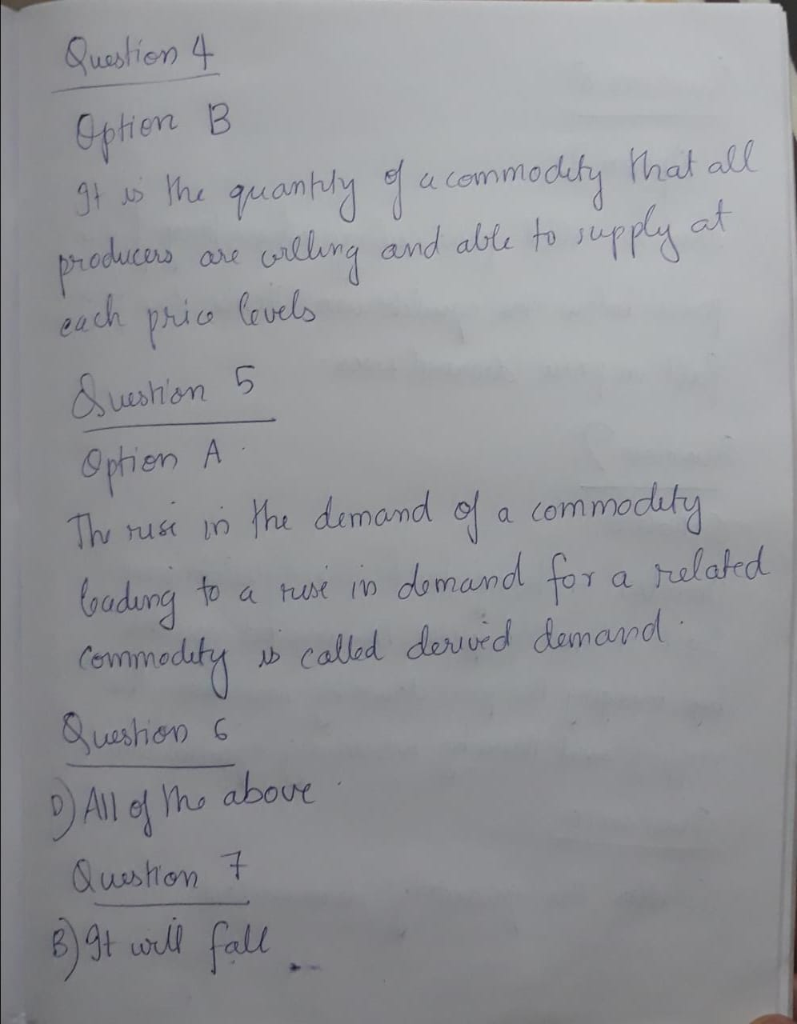 Question 4
Option B
It is the quantity of a commodity that all
producers are willing and able to supply at
each price levels
Question 5
Option A.
The rise in the demand of a commodity
leading to a rise in demand for a related
commodity is called derived demand.
Question 6
D) All of the above.
Question 7
B) It will fall